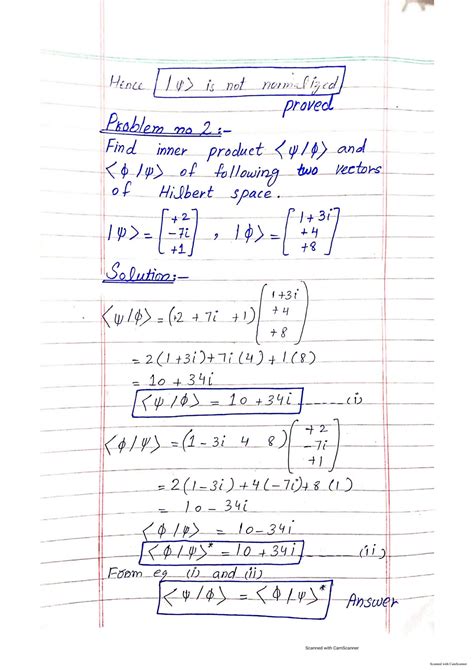 Hence |ψ> is not normalized
proved
Problem no 2:-
Find inner product <ψ/ϕ> and
<ϕ/ψ> of following two vectors
of Hilbert space.
|ψ> = [+2 -7i +1] , |ϕ> = [1+3i +4 +8]
Solution:-
<ψ/ϕ> = (+2 +7i +1) (1+3i +4 +8)
= 2(1+3i)+7i(4)+1(8)
= 10 + 34i
<ψ/ϕ> = 10 + 34i ------(i)
<ϕ/ψ> = (1-3i 4 8) (+2 -7i +1)
= 2(1-3i)+4(-7i)+8(1)
= 10 - 34i
<ϕ/ψ> = 10-34i
<ϕ/ψ>* = 10 + 34i ------(ii)
Form eq (i) and (ii)
<ψ/ϕ> = <ϕ/ψ>* Answer
Scanned with CamScanner
Scanned with CamScanner